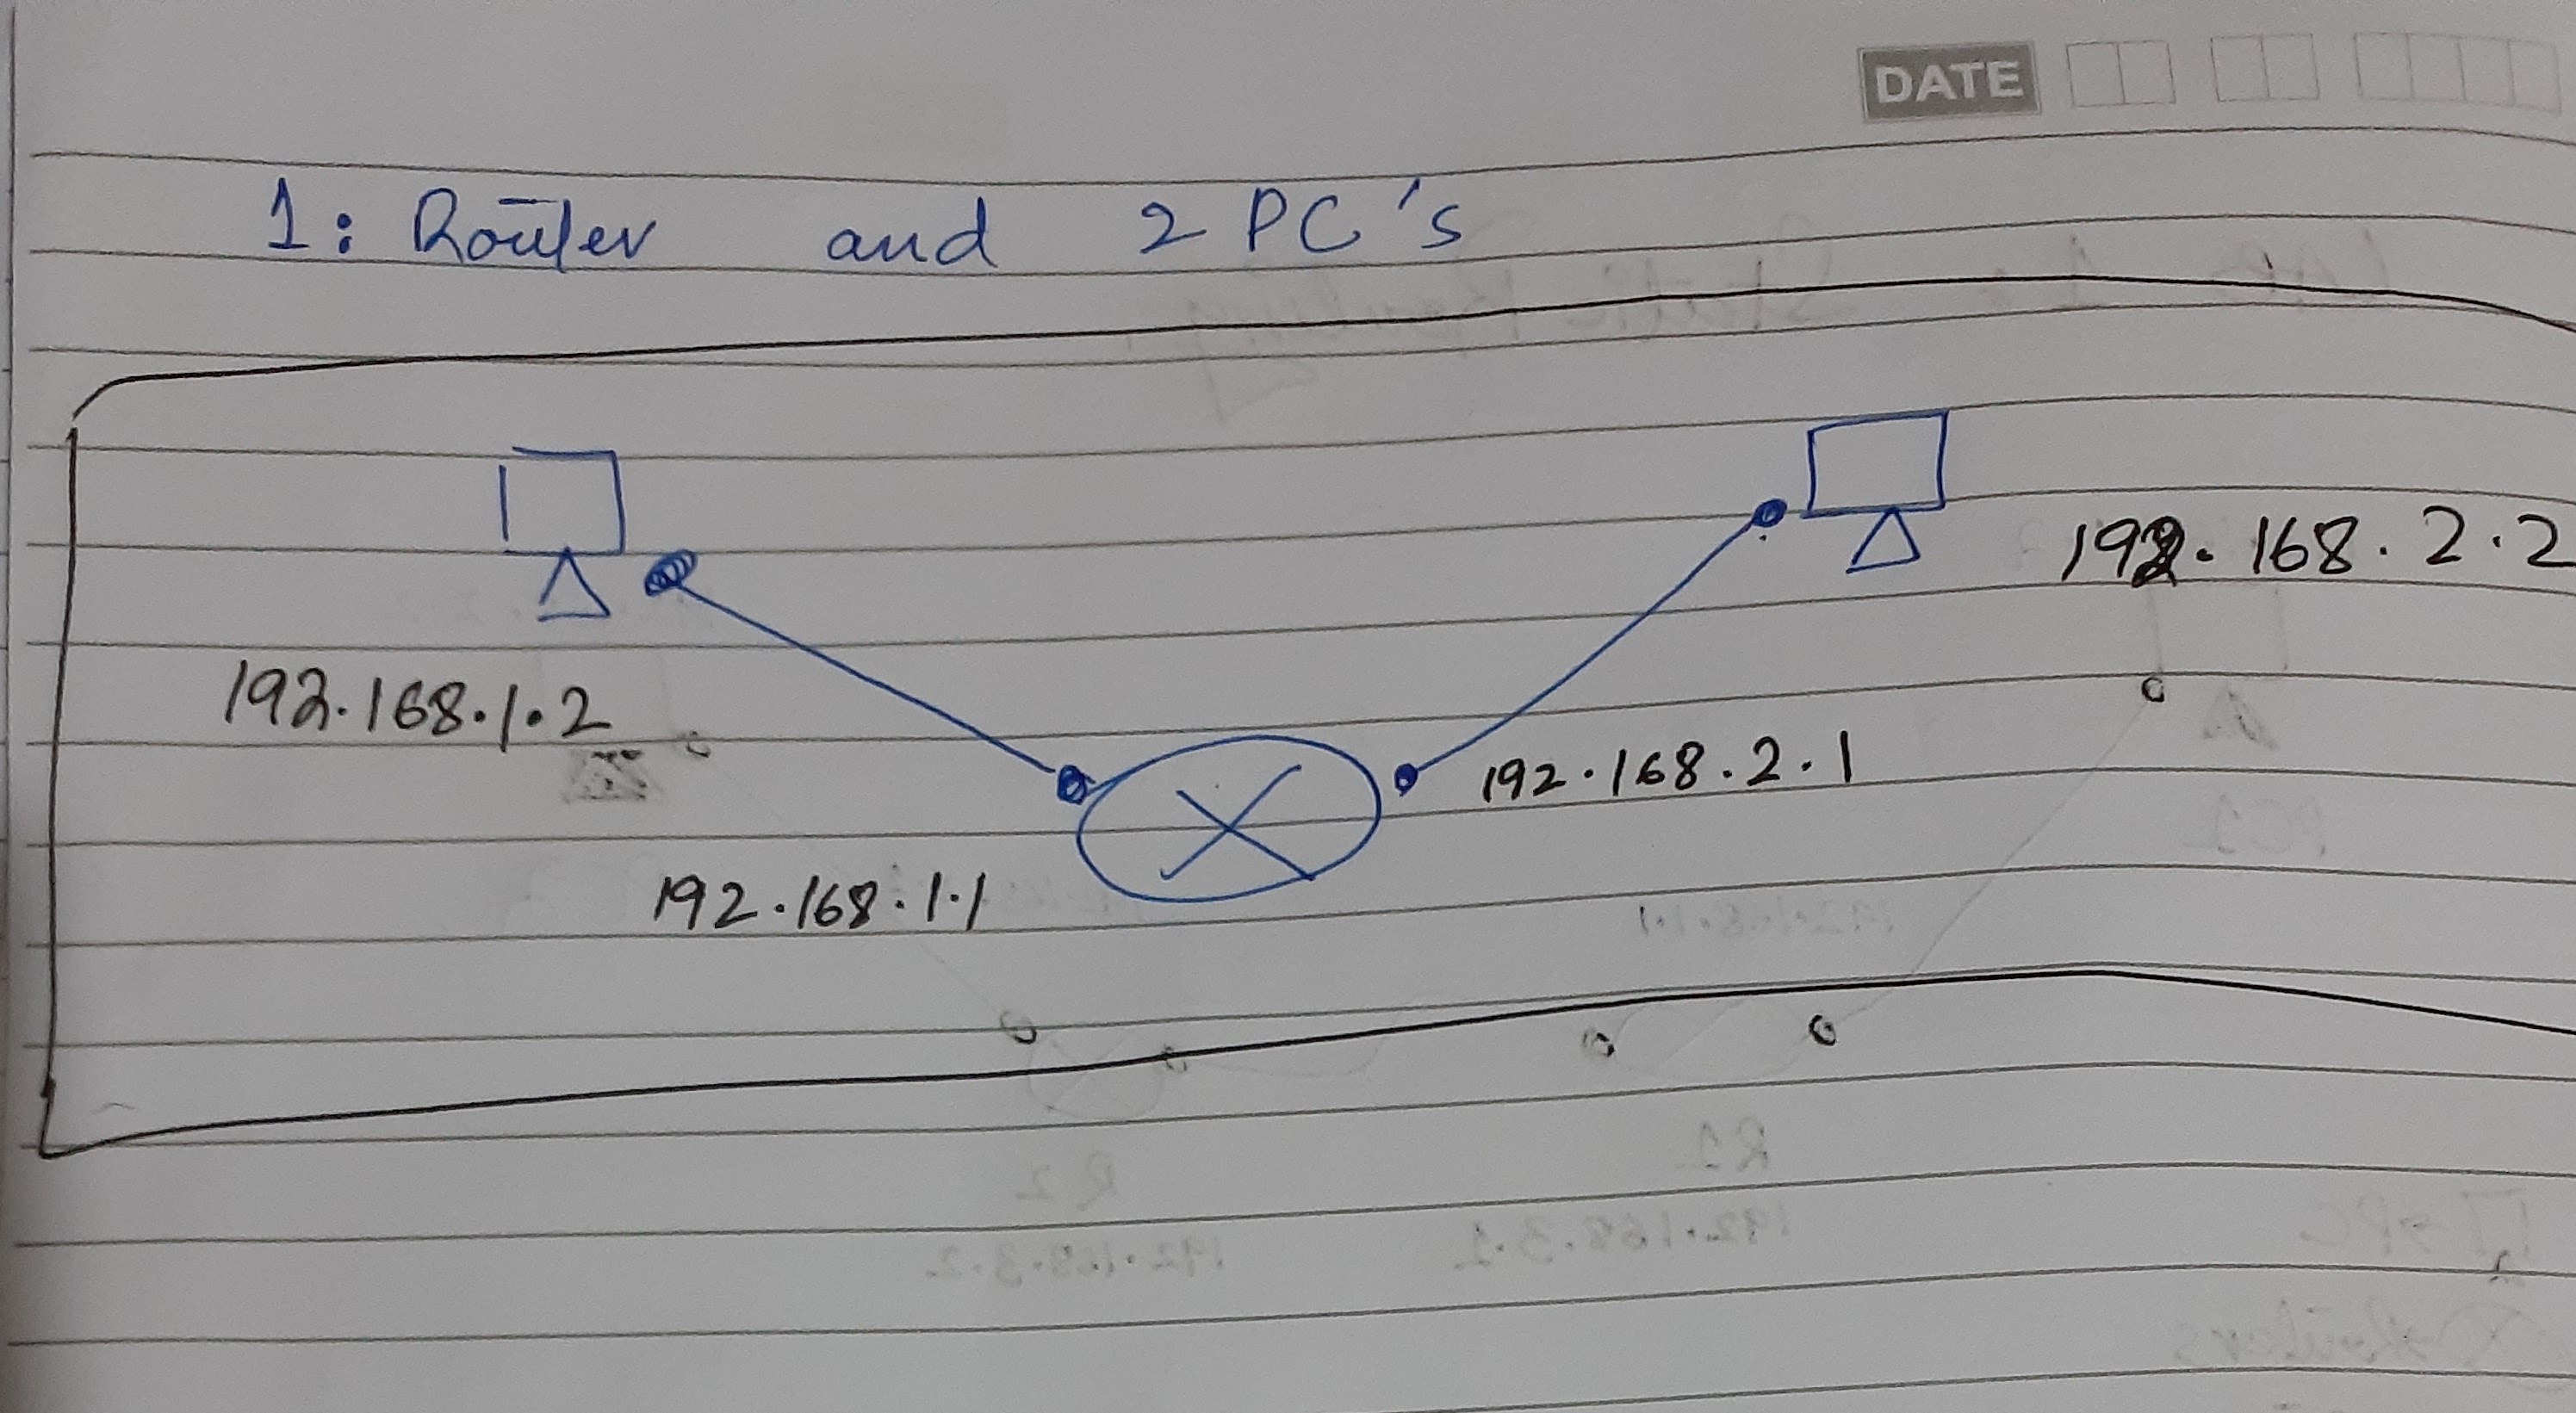 DATE
1: Router and 2 PC's
192.168.2.2
192.168.1.2
192.168.2.1
192.168.1.1